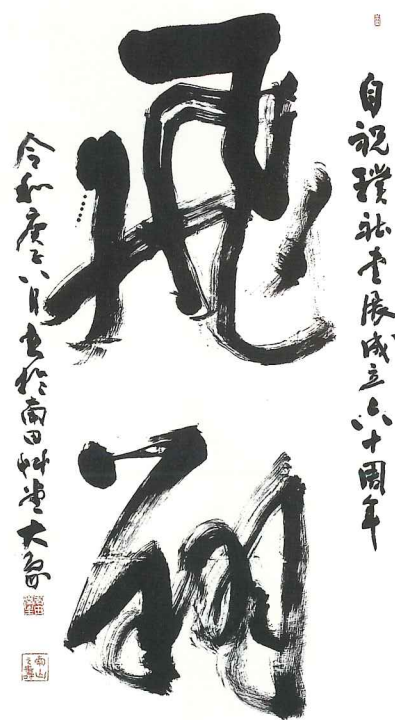 自祝璞社書展成立六十周年
飛翔
令和庚子八月書於南田艸堂大象